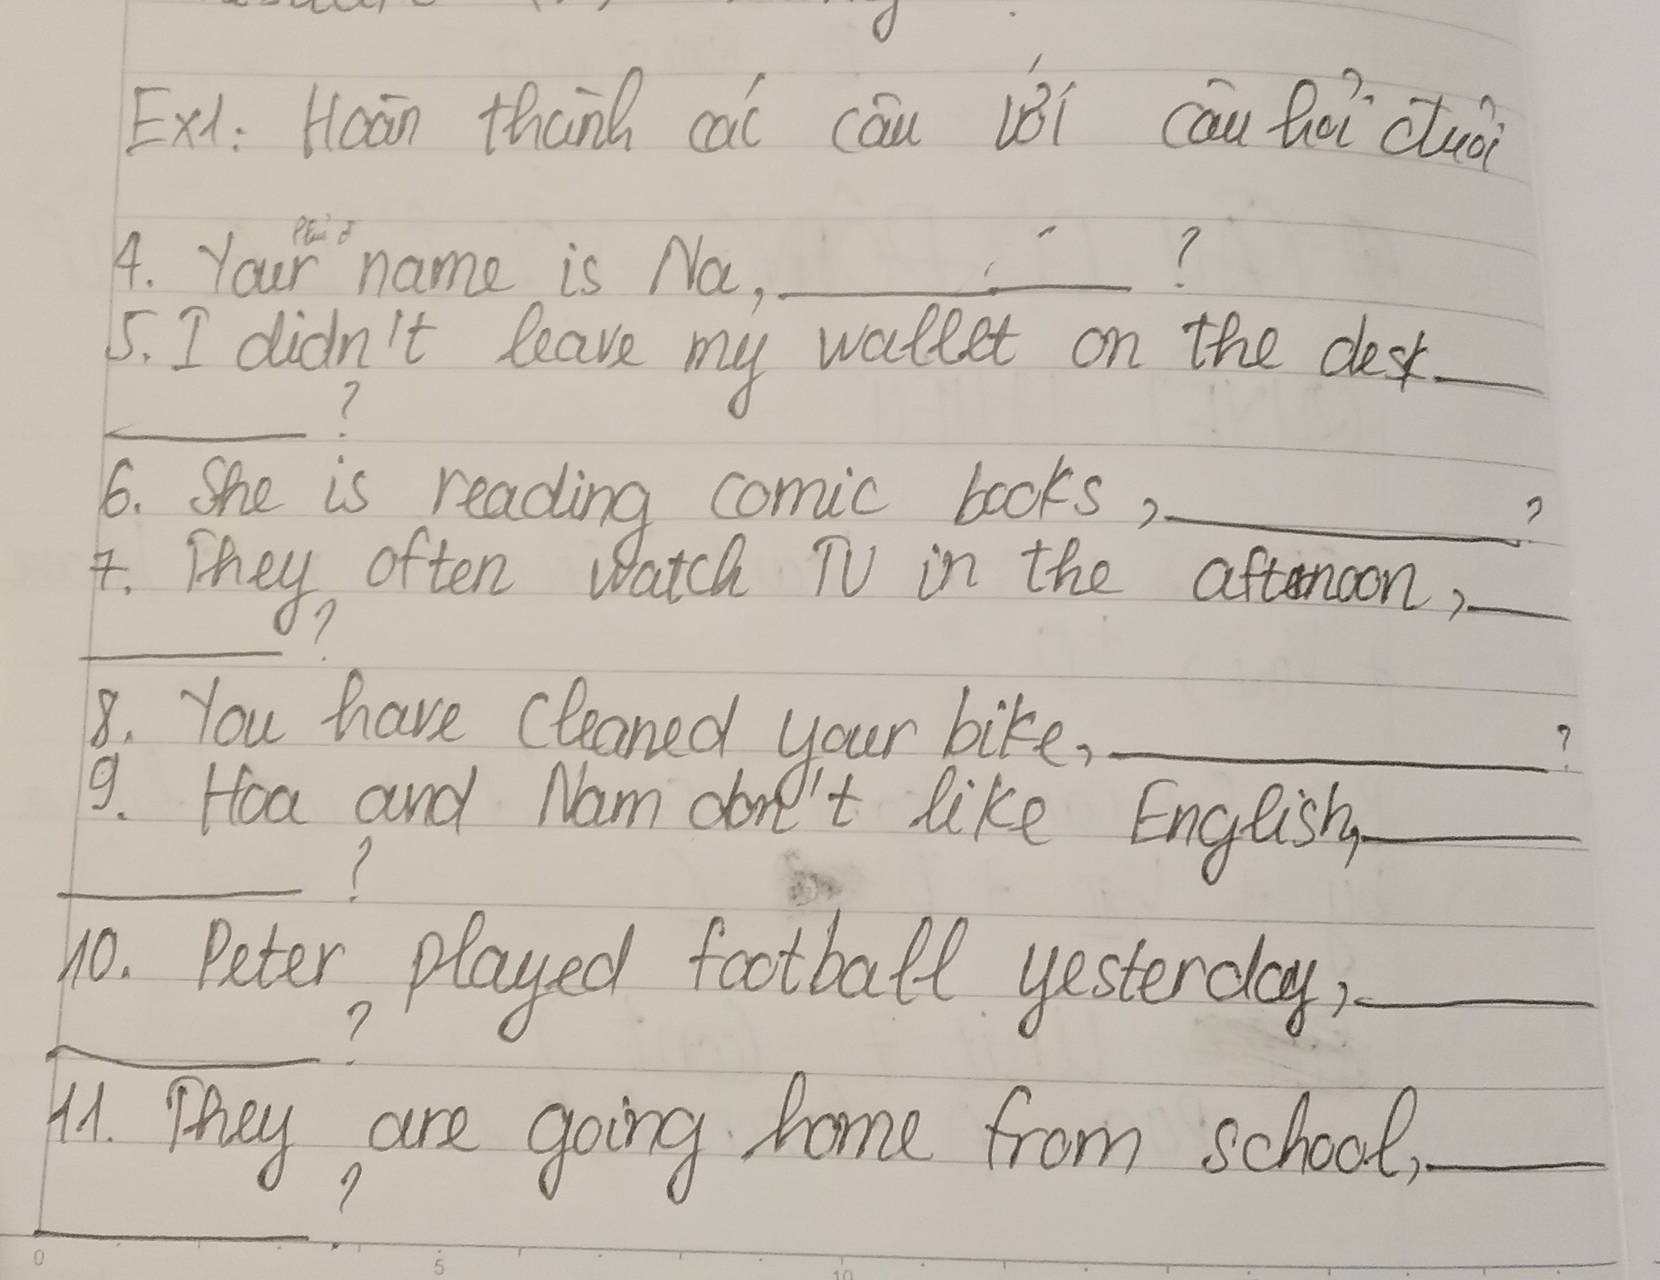 Ex1: Hoàn thành các câu với câu hỏi đuôi
4. Your name is Na, ?
5. I didn't leave my wallet on the desk
?
6. She is reading comic books, ?
7. They often watch TV in the afternoon,
?
8. You have cleaned your bike, ?
9. Hoa and Nam don't like English,
?
10. Peter played football yesterday,
?
11. They are going home from school,
?
0 5 10